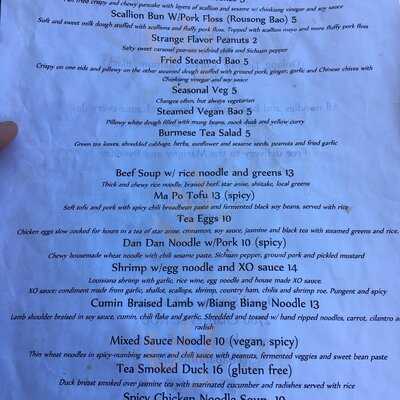 Pan fried crispy and chewy pancake with layers of scallion and sesame w/ chinkiang vinegar and soy sauce
Scallion Bun W/Pork Floss (Rousong Bao) 5
Soft and sweet milk dough stuffed with scallions and fluffy pork floss. Topped with scallion mayo and more fluffy pork floss
Strange Flavor Peanuts 2
Salty sweet caramel peanuts w/dried chilis and Sichuan pepper
Fried Steamed Bao 5
Crispy on one side and pillowy on the other steamed dough stuffed with ground pork, ginger, garlic and Chinese chives with
Chinkiang vinegar and soy sauce
Seasonal Veg 5
Changes often, but always vegetarian
Steamed Vegan Bao 5
Pillowy white dough filled with mung beans, mock duck and yellow curry
Burmese Tea Salad 5
Green tea leaves, shredded cabbage, herbs, sunflower and sesame seeds, peanuts and fried garlic
Beef Soup w/ rice noodle and greens 13
Thick and chewy rice noodle, braised beef, star anise, shiitake, local greens
Ma Po Tofu 13 (spicy)
Soft tofu and pork with spicy chili broadbean paste and fermented black soy beans, served with rice
Tea Eggs 10
Chicken eggs slow cooked for hours in a tea of star anise, cinnamon, soy sauce, jasmine and black tea with steamed greens and rice.
Dan Dan Noodle w/Pork 10 (spicy)
Chewy housemade wheat noodle with chili sesame paste, Sichuan pepper, ground pork and pickled mustard
Shrimp w/egg noodle and XO sauce 14
Louisiana shrimp with garlic, rice wine, egg noodle and house made XO sauce.
XO sauce: condiment made from garlic, shallot, scallops, shrimp, country ham, chilis and shrimp roe. Pungent and spicy
Cumin Braised Lamb w/Biang Biang Noodle 13
Lamb shoulder braised in soy sauce, cumin, chili flake and garlic. Shredded and tossed w/ hand ripped noodles, carrot, cilantro a
radish
Mixed Sauce Noodle 10 (vegan, spicy)
Thin wheat noodles in spicy-numbing sesame and chili sauce with peanuts, fermented veggies and sweet bean paste
Tea Smoked Duck 16 (gluten free)
Duck breast smoked over jasmine tea with marinated cucumber and radishes served with rice
Spicy Chicken Noodle Soup